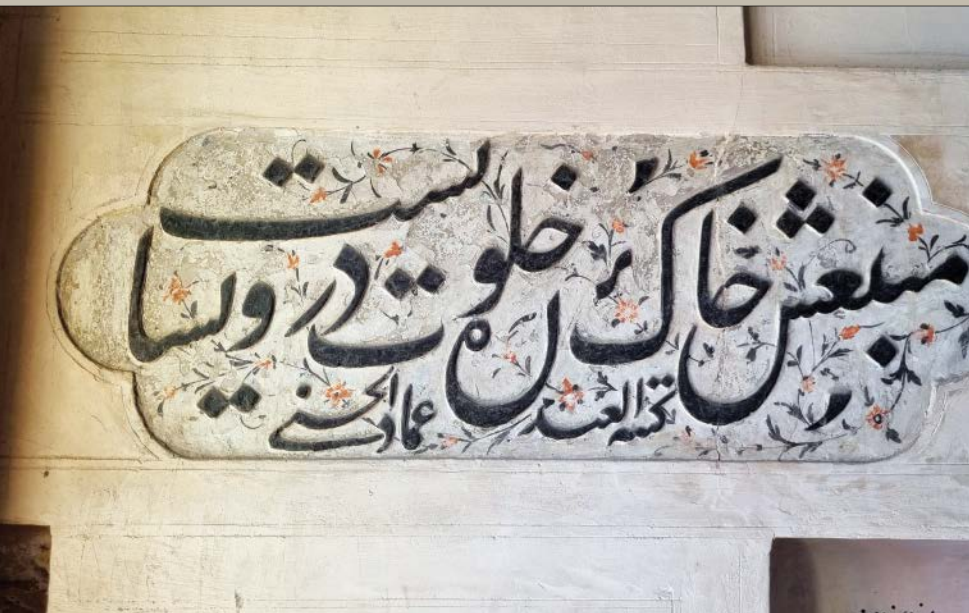 منبعش خاک در خلوت درویشانست
کتبه العبد عماد الحسنی